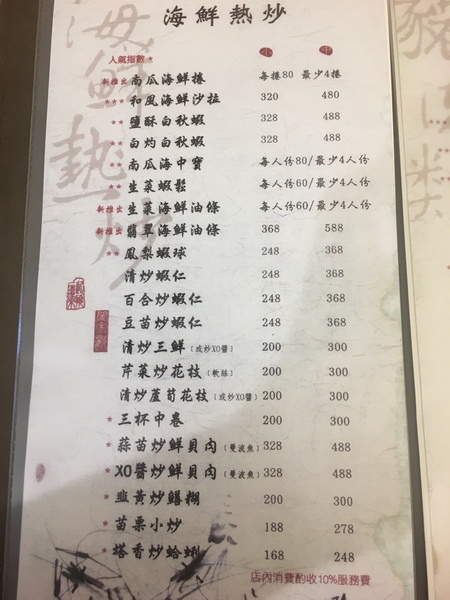 海鮮熱炒
人氣指數★ 小 中
新推出 南瓜海鮮捲 每捲80 最少4捲
★★★ 和風海鮮沙拉 320 480
★★ 鹽酥白秋蝦 328 488
★★ 白灼白秋蝦 328 488
★★ 南瓜海中寶 每人份80/最少4人份
★★ 生菜蝦鬆 每人份60/最少4人份
新推出 生菜海鮮油條 每人份60/最少4人份
新推出 翡翠海鮮油條 368 588
★★ 鳳梨蝦球 248 368
清炒蝦仁 248 368
百合炒蝦仁 248 368
豆苗炒蝦仁 248 368
清炒三鮮(或炒XO醬) 200 300
芹菜炒花枝(軟絲) 200 300
清炒蘆荀花枝(或炒XO醬) 200 300
★ 三杯中卷 200 300
★ 蒜苗炒鮮貝肉(曼波魚) 328 488
★ XO醬炒鮮貝肉(曼波魚) 328 488
★ 韭黃炒鱔糊 200 300
★ 苗栗小炒 188 278
★ 塔香炒蛤蜊 168 248
店內消費酌收10%服務費
海鮮熱炒